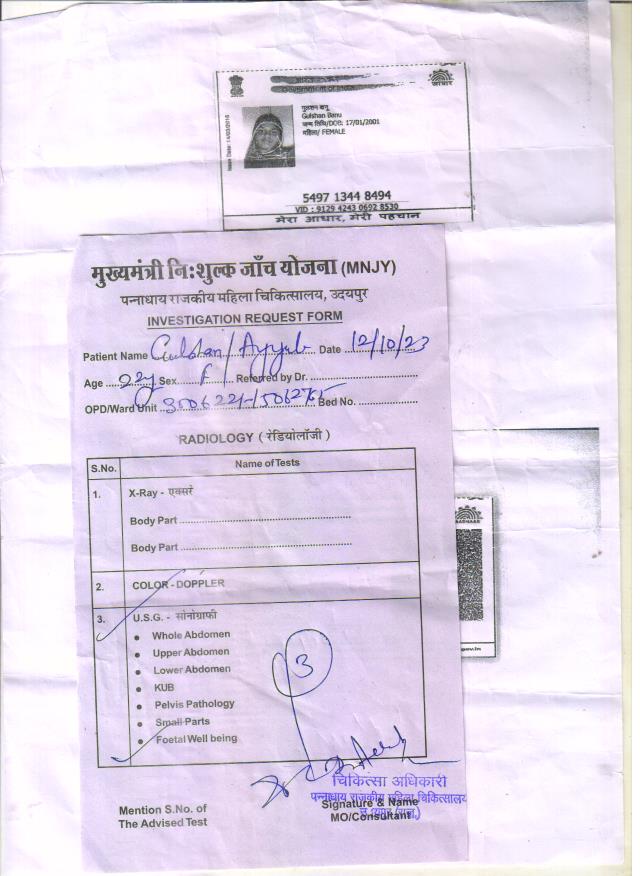 Government of India
आधार
गुलशन बानु
Gulshan Banu
जन्म तिथि/DOB: 17/01/2001
महिला/ FEMALE
5497 1344 8494
VID : 9129 4243 0692 8530
मेरा आधार, मेरी पहचान
मुख्यमंत्री नि:शुल्क जाँच योजना (MNJY)
पन्नाधाय राजकीय महिला चिकित्सालय, उदयपुर
INVESTIGATION REQUEST FORM
Patient Name Gulshan / Ayyub Date 12/10/23
Age 22y Sex F Referred by Dr.
OPD/Ward Unit Bed No.
RADIOLOGY ( रेडियोलॉजी )
S.No. Name of Tests
1. X-Ray - एक्सरे
Body Part
Body Part
2. COLOR - DOPPLER
3. U.S.G. - सोनोग्राफी
• Whole Abdomen
• Upper Abdomen
• Lower Abdomen
• KUB
• Pelvis Pathology
• Small Parts
• Foetal Well being
3
चिकित्सा अधिकारी
पन्नाधाय राजकीय महिला चिकित्सालय
Signature & Name
MO/Consultant
Mention S.No. of
The Advised Test
AADHAAR
gov.in